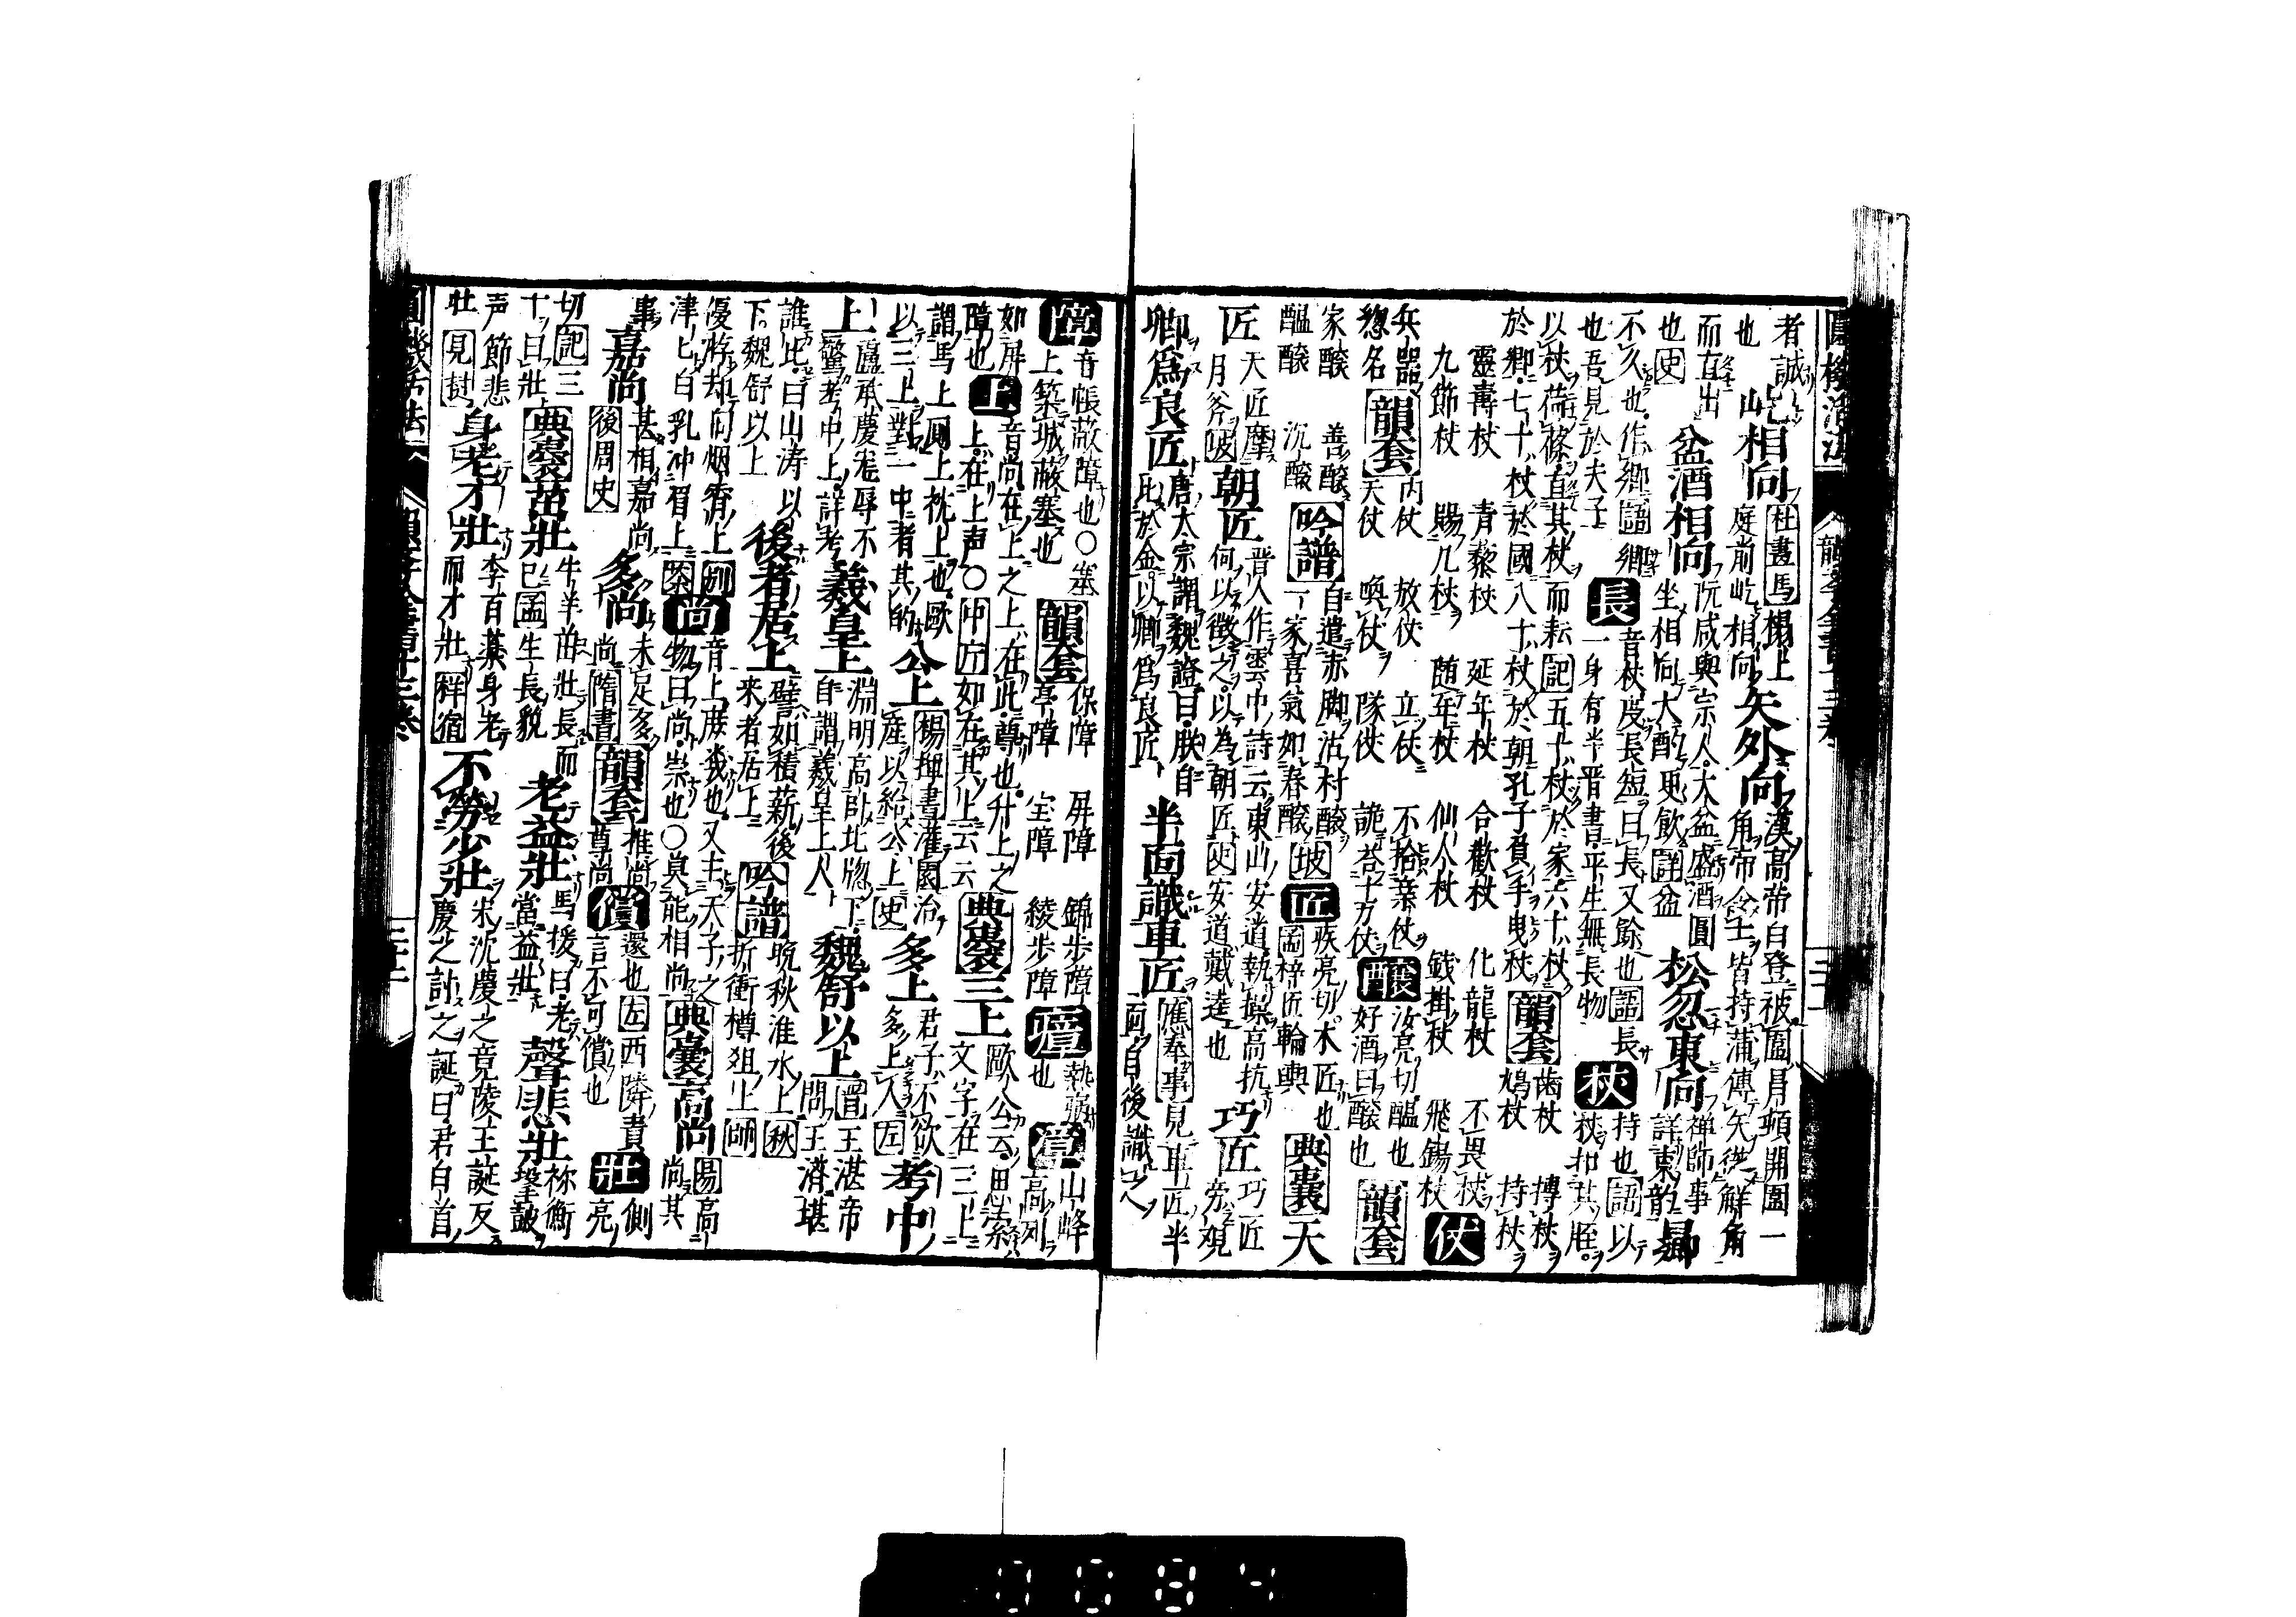 圓機活法
韻學全書十三卷
者誠
也
屹相向
杜畫馬榻上
庭前屹相向
矢外向
漢高帝白登被圍月頓開圍一
角帝令士皆持蒲傅矢從觧角
而直出
也史
盆酒相向
阮咸與宗人大盆盛酒圓
坐相向大酌更飲詳盆
松忽東向
禅師事
詳東韵
曏
不久也作鄉語鄉
也吾見於夫子
長
音杖度長短曰長又餘也語長
一身有半晋書平生無長物
杖
持也語以
杖扣其脛
以杖荷蓧直其杖而耘記五十杖於家六十杖
於鄉七十杖於國八十杖於朝孔子負手曳杖
韻套
齒杖 摶杖
鳩杖 持杖
靈壽杖 青藜杖 延年杖 合歡杖 化龍杖 不畏杖
九節杖 賜几杖 随年杖 仙人杖 錢掛杖 飛錫杖
仗
兵器
惣名
韻套
内仗 放仗 立仗 不捨亲仗
天仗 喚仗 隊仗 詭荅十万仗
釀
汝亮切醖也
好酒曰釀也
韻套
家釀 善釀
醖釀 沉釀
吟譜
自遣赤脚沽村釀
一家喜氣如春釀坡
匠
疾亮切木匠也
周梓匠輪輿
典囊
天
匠
天匠摩
月斧坡
朝匠
晋人作雲中詩云東山安道執操高抗
何以徵之以為朝匠史安道戴逵也
巧匠
巧匠
旁观
卿為良匠
唐太宗謂魏證曰朕自
比於金以卿為良匠
半面識車匠
應奉事見車匠半
面自後識之
障
音帳敵障也〇塞
上築城蔽塞也
韻套
保障 屏障 錦步障
亭障 宝障 綾步障
瘴
熱病
也
嶂
山峰
高列
如屏
障也
上
音尚在上之上在此尊也升上之
上在上声〇中匠如在其上云云
典囊
三上
歐公云思索
文字在三上
謂馬上厠上枕上也歐
以三上對一中者其的
公上
楊惲書灌園治
產以給公上史
多上
君子不欲
多上人左
考中
上
盧承慶考辱不
驚考中上詳考
羲皇上
淵明高卧北牕下
自謂羲皇上人
魏舒以上
晋王湛帝
問王濟堪
誰比曰山涛以
下魏舒以上
後者居上
譬如積薪後
来者居上
吟譜
晩秋淮水上秋
折衝樽俎上帥
優游却向烟霄上別
津上白乳冲眉上茶
尚
音上庶幾也又主天子之
物曰尚崇也〇奧能相尚
典囊
高尚
易高
尚其
事
嘉尚
甚相嘉尚
後周史
多尚
未足多
尚隋書
韻套
推尚
尊尚
償
還也左西隣責
言不可償也
壯
側亮
切記三
十曰壯
典囊
茁壯
牛羊茁壯長而
已孟生長貌
老益壯
馬援曰老
當益壯
聲悲壯
祢衡
撾鼓
声節悲
壯見撾
身老才壯
李百藥身老
而才壯祥宿
不勞少壯
宋沈慶之竟陵王誕反
慶之討之誕曰君白首
圓機活法
韻學全書十三卷
0084